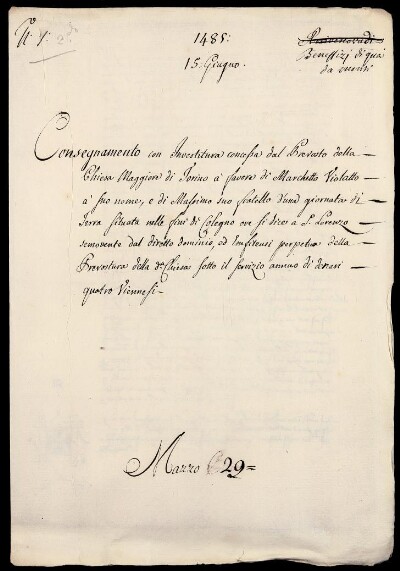 N.° 1.
1485:
15. Giugno.
Beneffizj di quà
da monti
Consegnamento con Investitura concessa dal Prevosto della
Chiesa Maggiore di Torino à favore di Marchetto Violatto
a suo nome, e di Massimo suo fratello d'una giornata di
terra situata nelle fini di Colegno ove si dice à S. Lorenzo
semovente dal diretto dominio, ed Emfiteusi perpetua della
Prevostura della d.ª Chiesa sotto il servizio annuo di denari
quatro Viennesi
Mazzo 29=